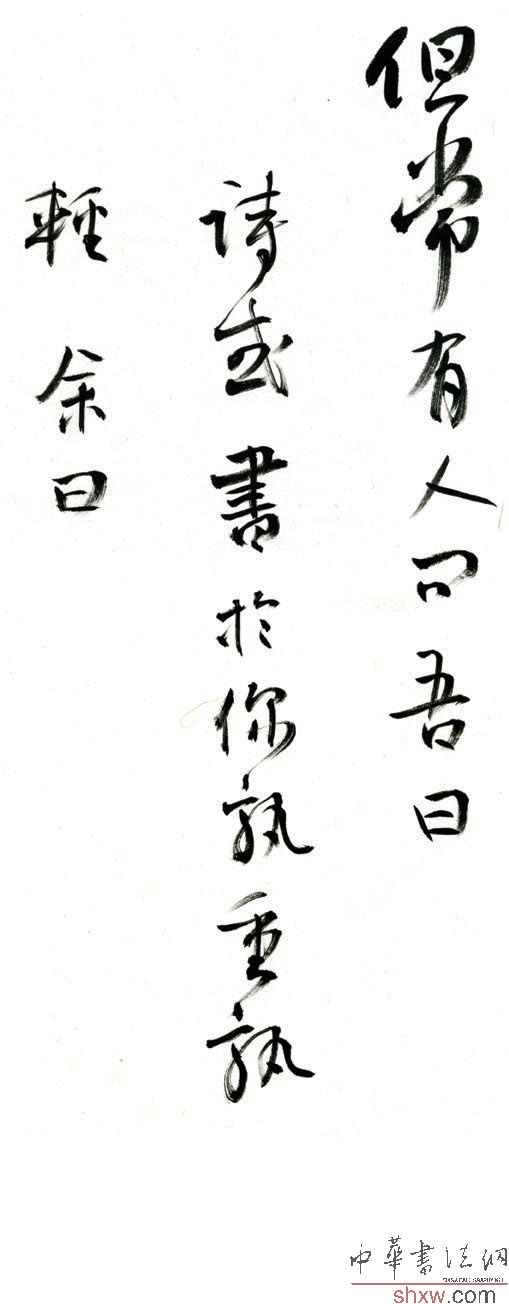 但常有人问吾曰
诗或書於你孰重孰
輕 余曰
中華書法網
shxw.com